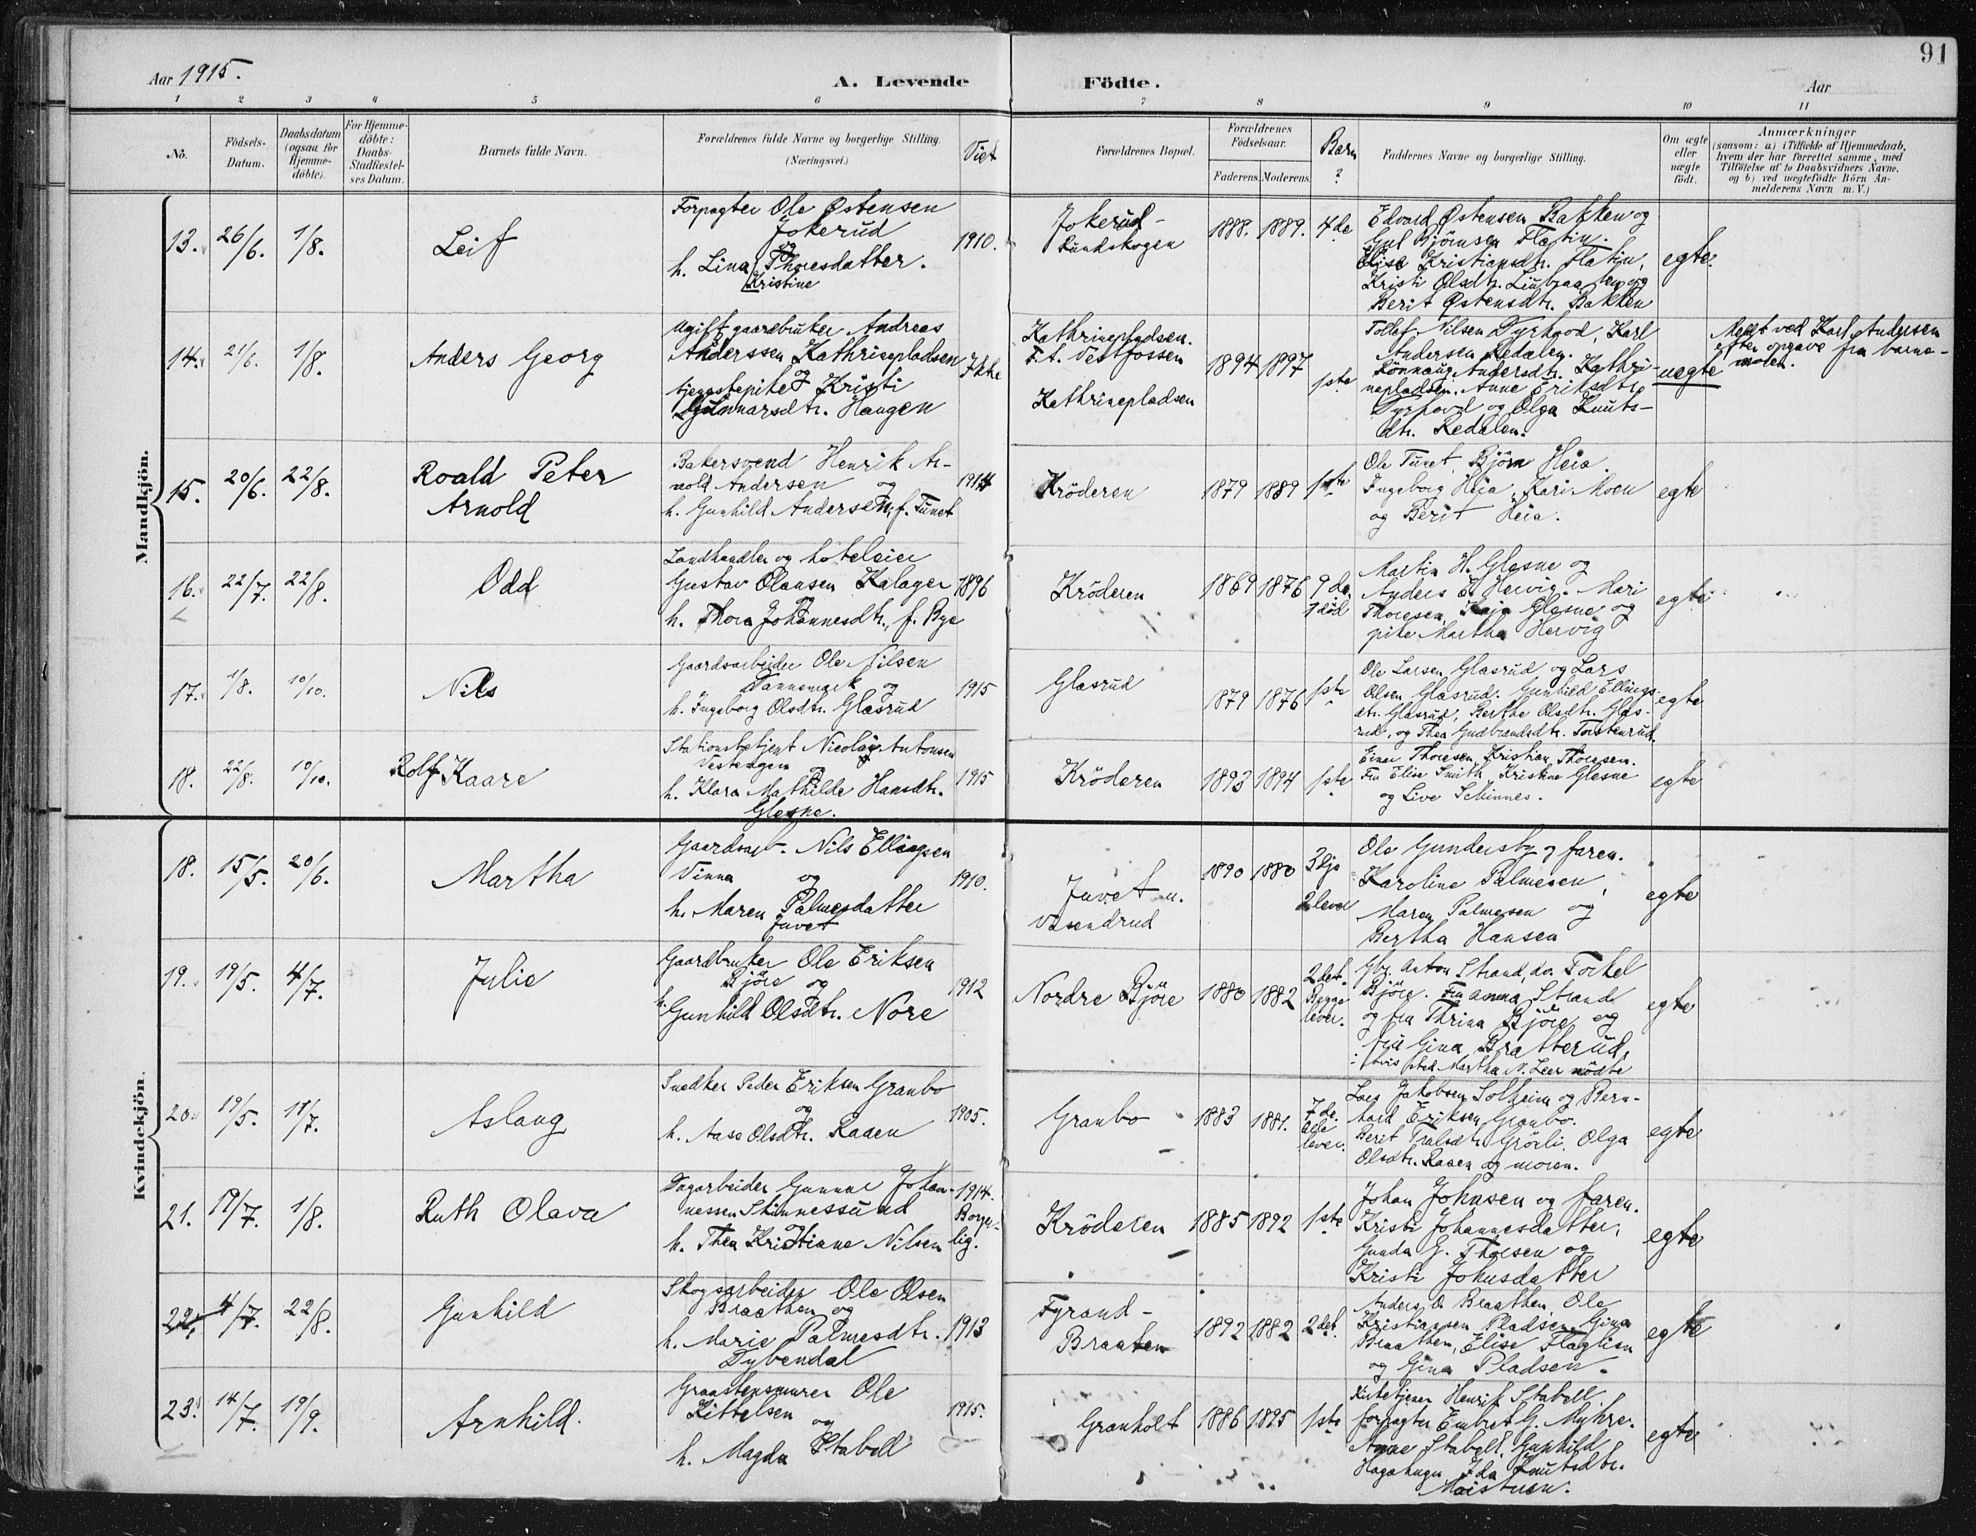 91
Aar 1915.
A. Levende Födte.
Aar
1 2 3 4 5 6 7 8 9 10 11
No.
Födsels-Datum.
Daabsdatum (ogsaa for Hjemme-döbte).
For Hjemme-döbte: Daabs-Stadfæstel-ses Datum.
Barnets fulde Navn.
Forældrenes fulde Navne og borgerlige Stilling.
(Næringsvei.)
Viet
Forældrenes Bopæl.
Forældrenes Födselsaar.
Faderens. Moderens.
Barn ?
Faddernes Navne og borgerlige Stilling.
Om ægte eller uægte födt.
Anmærkninger
(saasom: a) i Tilfælde af Hjemmedaab,
hvem der har forrettet samme, med
Tilföielse af to Daabsvidners Navne.
og b) ved uægtefödte Börn An-
melderens Navn m. V.)
Mandkjön.
13. 26/6. 1/8. Leif
Forpagter Ole Østensen
Jokerud
og
h. Lina Thoresdatter.
Kristine
1910.
Jokerud-
Lundskogen
1888. 1889. 4de
Edvard Østensen Bakken og
Gul Björnsen Flatin.
Elise Kristiansdtr. Flatin,
Kristi Olsdtr. og
Berit Østensdtr. Bakken
egte.
14. 21/6. 1/8. Anders Georg
Ugift gaardbruker Andreas
Anderssen Kathrinepladsen
og
tjenestepike Kristi
Gunnarsdtr. Haugen
Ikke
Kathrinepladsen.
F.A. Vestfossen
Kathrinepladsen
1894 1897 1ste
Tollef Nilsen Tyrhovd, Karl
Andersen Redalen.
Rönnaug Andersdtr. Kathri-
nepladsen. Anne Eriksdtr.
Tyrhovd og Olga Knuts-
dtr. Redalen.
uegte
Meldt ved Karl Andersen
efter opgave fra barne-
moren.
15. 20/6. 22/8. Roald Peter
Arnold
Bakersvend Henrik Ar-
nold Andersen og
h. Gunhild Andersen, f. Tunet
1914
Kröderen
1879 1889 1ste
Ole Tunet, Björn Heia.
Ingeborg Heia, Kari Moen
og Berit Heia.
egte
16. 22/7. 22/8. Odd
Landhandler og hoteleier
Gustav Olausen Kalager
og
h. Thora Johannesdtr., f. Bye
1896
Kröderen
1869 1876 9de
1 död
Martin H. Glesne og
Anders E. Hervig. Mari
Thoresen, Kaja Glesne og
pike Martha Hervig
egte
17. 1/8. 10/10. Nils
Gaardsarbeider Ole Nilsen
Dannemark og
h. Ingeborg Olsdtr. Glasrud
1915
Glasrud
1879 1876 1ste
Ole Larsen Glasrud og Lars
Olsen Glasrud. Gunhild Ellings-
dtr. Glasrud, Berthe Olsdtr. Glas-
rud, og Thea Gudbrandsdtr. Torstenrud.
egte
18. 22/8. 10/10. Rolf Kaare
Stationsbetjent Nicolay Antonsen
Vestengen og
h. Klara Mathilde Hansdtr.
Glesne.
1915
Kröderen
1893 1894 1ste
Einar Thoresen, Kristian Thoresen.
Fru Elise Smith, Kristine Glesne
og Live Schinnes.
egte
Kvindekjön.
18. 15/5. 20/6. Martha
Gaardsarb. Nils Ellingsen
Vinna og
h. Maren Palmesdatter
Juvet
1910.
Juvet u.
Vasendrud
1890 1880 3dje
2 lever
Ole Gundersby og faren.
Karoline Palmesen,
Maren Palmesen og
Bertha Hansen
egte
19. 19/5. 4/7. Julie
Gaardbruker Ole Eriksen
Björe og
h. Gunhild Olsdtr. Nore
1912
Nordre Björe
1880 1882 2det.
Begge
lever.
Gbr. Anton Strand, do. Torkel
Björe. Fru Anna Strand
og fru Thrina Björe og
fru Gina Bratterud,
i hvis sted Martha N. Leer mödte
egte
20. 19/5. 11/7. Aslaug
Snedker Peder Eriksen Granbo
og
h. Aase Olsdtr. Raaen
1905.
Granbo
1883 1881. 7de.
Alle
lever.
Lars Jakobsen Solheim og Bern-
hard Eriksen Granbo.
Berit Truls­dtr. Grörli. Olga
Olsdtr. Raaen og moren.
egte
21. 19/7. 1/8. Ruth Olava
Dagarbeider Gunnar Johan-
nessen Skinnessund
h. Thea Kristiane Nilsen
1914.
Borger-
lig.
Kröderen
1885 1892 1ste
Johan Johnsen og faren.
Kristi Johannesdatter,
Gunda G. Thoresen og
Kristi Johnsdatter
egte
22. 4/7. 22/8. Gunhild
Skogsarbeider Ole Olsen
Braathen og
h. Marie Palmesdtr.
Dybendal
1913
Fyrand-
Braaten
1892 1882 2det.
Anders O. Braathen, Ole
Kristiansen Pladsen. Gina
Braathen, Elise Flaglien
og Gina Pladsen.
egte
23. 14/7. 19/9. Arnhild.
Graastensmurer Ole
Kittelsen og
h. Magda Stabell
1915.
Granholt
1886 1895 1ste
Kirketjener Henrik Stabell,
forpagter Embret G. Myhre.
Anne Stabell, Gunhild
Hagahugu, Ida Knutsdtr.
Moistuen.
egte